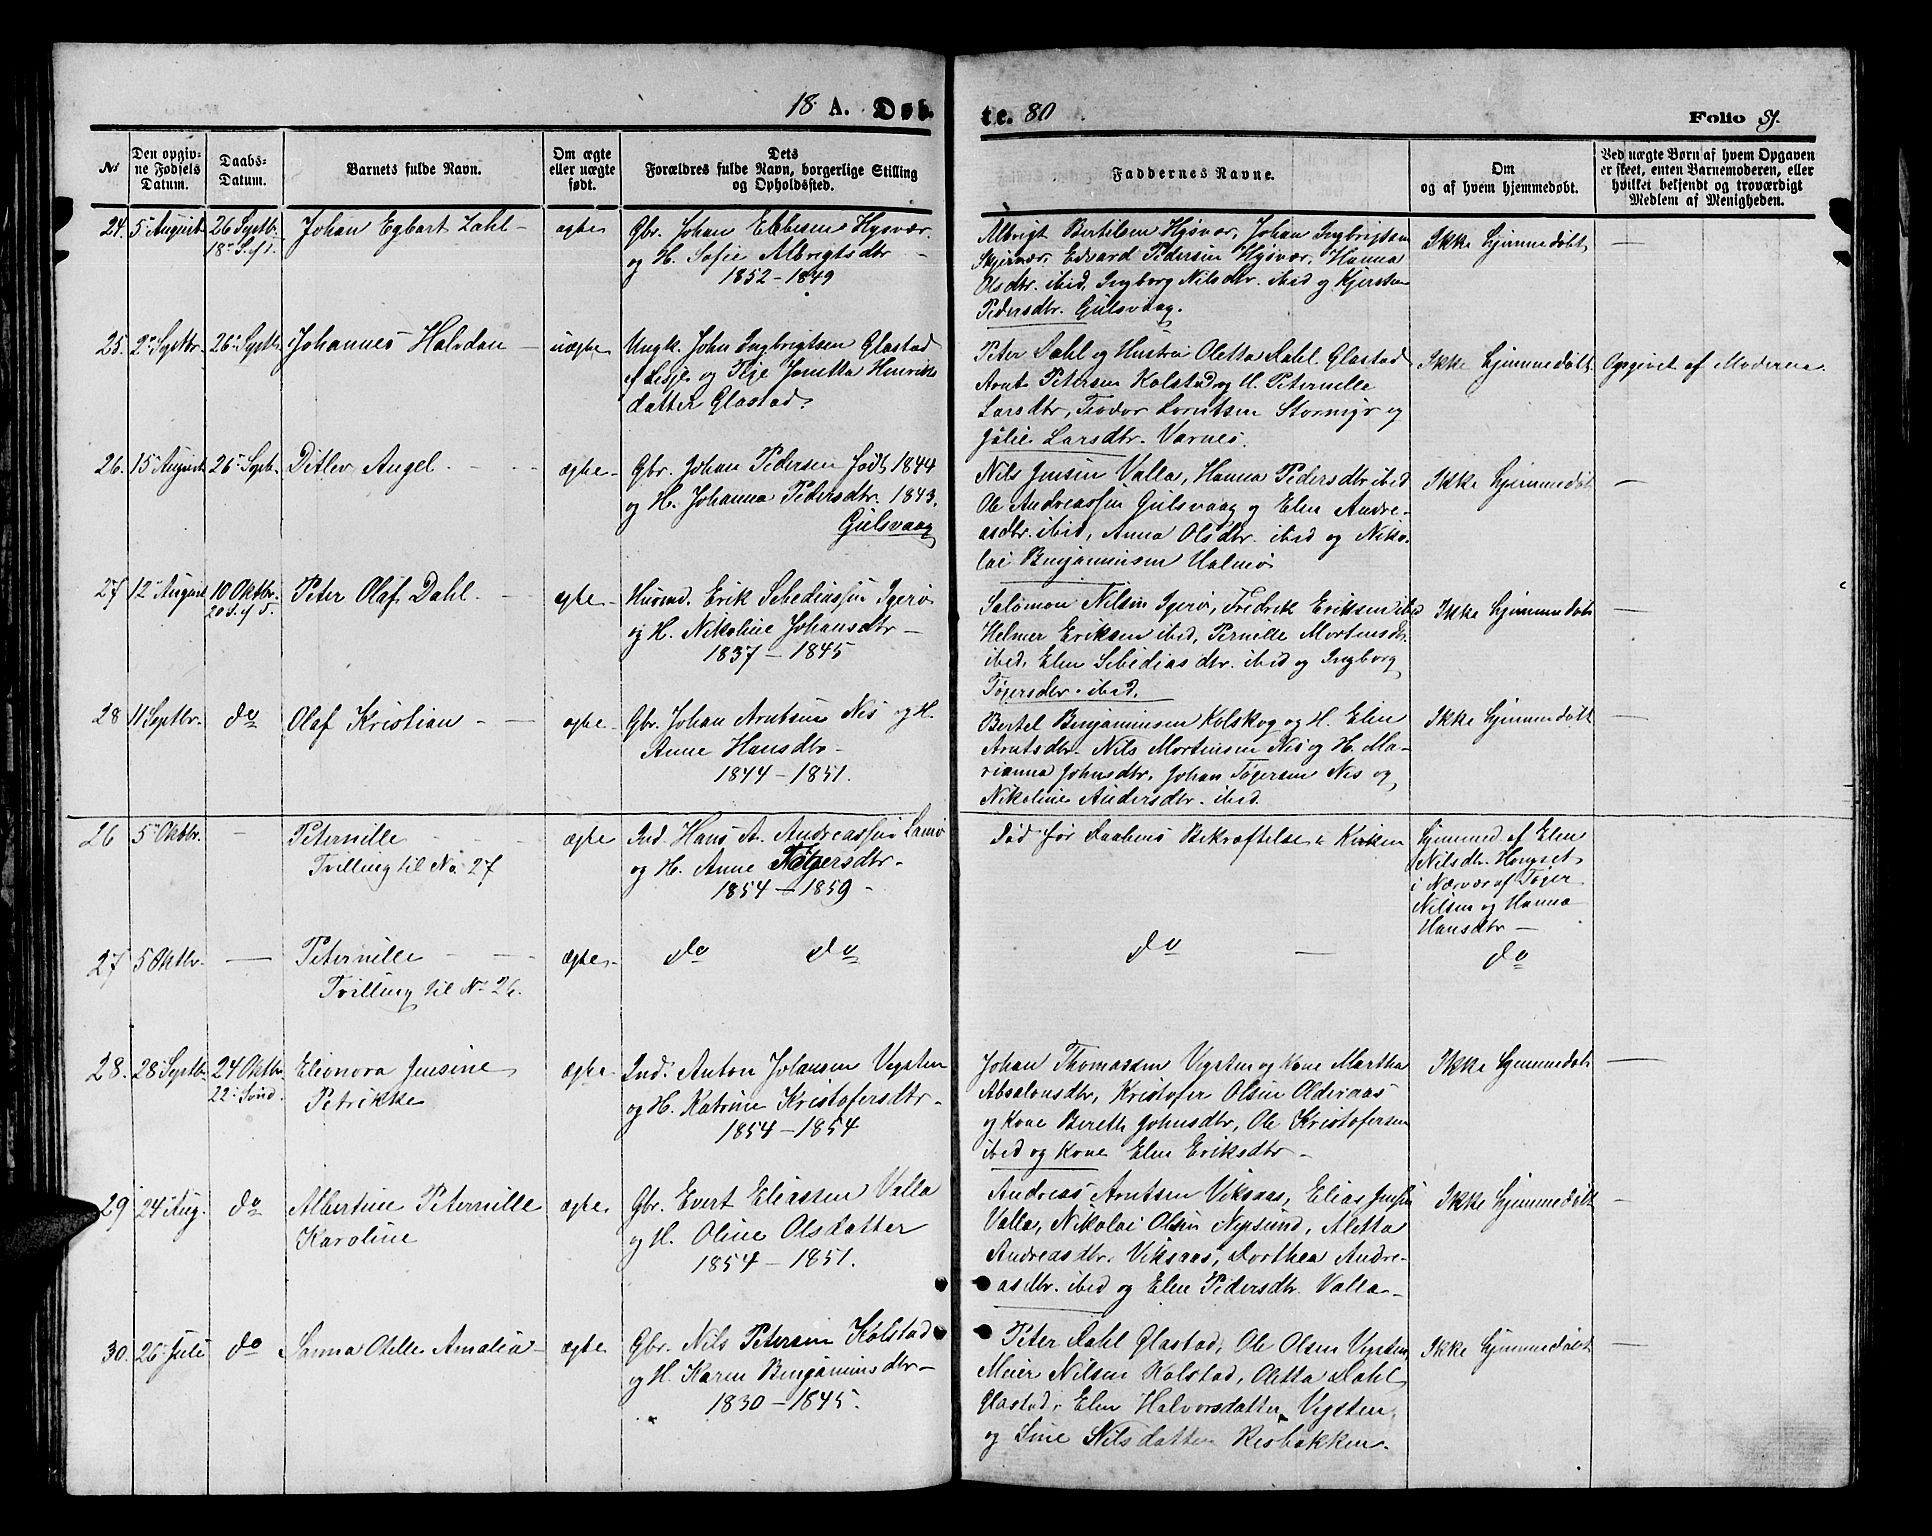 18 A. Døb- te. 80
Folio 51.
No
Den opgiv-
ne Fødsels
Datum.
Daabs-
Datum.
Barnets fulde Navn.
Om ægte
eller uægte
født.
Dets
Forældres fulde Navn, borgerlige Stilling
og Opholdssted.
Faddernes Navne.
Om
og af hvem hjemmedøbt.
Ved uægte Børn af hvem Opgaven
er skeet, enten Barnemoderen, eller
hvilket bekjendt og troværdigt
Medlem af Menigheden.
24. 5 August 26 Septb. Johan Egbart Zahl - ægte
18de S. e. Tr.
Gbr. Johan Ebbesen Hysvær
og H. Sofie Albrigtsdtr -
1852 - 1849
Albrigt Bertilsen Hysvær, Johan Ingbrigtsen
Skjærvær, Edvard Pedersen Hysvær, Hanna
Olsdtr. ibid, Ingborg Nilsdtr. ibid og Kjersten
Pedersdtr. Gulsvaag.
Ikke hjemmedøbt -
25. 2 Septbr. 26 Septb. Johannes Halvdan - uægte
Ungk. John Ingbrigtsen Glastad
af Lesje og Pige Jonetta Henriks
datter Glastad.
Peter Dahl og Hustru Oletta Dahl Glastad
Arnt Petersen Kolstad og H. Peternille
Larsdtr, Teodor Lorntsen Stormyr og
Julie Larsdtr. Varnes.
Ikke hjemmedøbt Opgivet af Moderen
26. 15 August 26 Septb. Ditlev Angel - - - ægte -
Gbr. Johan Pedersen født 1844
og H. Johanna Pedersdtr. 1843.
Gulsvaag
Nils Jensen Valla, Hanna Pedersdtr ibid
Ole Andreassen Gulsvaag og Elen Andre-
asdtr. ibid, Anna Olsdtr. ibid og Niko-
lai Benjaminsen Halmø
Ikke hjemmedøbt -
27 12 August 10 Oktbr. Peter Olaf Dahl - - ægte -
20 S. e. T.
Huusmd. Erik Sebediassen Igerø
og H. Nikoline Johansdtr -
1837 - 1845
Salomon Nilsen Igerø, Fredrik Eriksen ibid
Helmer Eriksen ibid, Pernille Mortensdtr.
ibid, Elen Sebediasdtr. ibid og Ingborg
Tøgersdtr. ibid.
Ikke hjemmedøbt -
28 11 Septbr. do Olaf Kristian - - ægte -
Gbr. Johan Arntsen Nes og H.
Anne Hansdtr -
1844 - 1851.
Bertel Benjaminsen Kolskog og H. Elen
Arntsdtr. Nils Mortensen Nes og H. Ma-
rianna Johnsdtr, Johan Tøgersen Nes og
Nikoline Andersdtr. ibid.
Ikke hjemmedøbt -
26 5 Oktbr. - Peternille - - ægte
Tvilling til No. 27
Ind. Hans A. Andreassen
og H. Anne Tøgersdtr -
1854 - 1859 -
Død før Daabens Bekræftelse i Kirken
Hjemmed. af Elen
Nilsdtr. Hongset
i Nærvær af Tøger
Nilsen og Hanna
Hansdtr -
27 5 Oktbr. - Peternille - - ægte -
Tvilling til No 26.
do do
do - do
28. 28 Septb. 24 Oktbr. Elionora Jensine ægte
22 Sønd. Petrikke
Ind. Anton Johansen Vegsten
og H. Katrine Kristofersdtr -
1854 - 1854
Johan Thomassen Vegsten og Kone Martha
Absalonsdtr, Kristofer Olsen Olderaas
og Kone Bereth Johnsdtr, Ole Kristofersen
ibid og Kone Elen Eriksdtr -
Ikke hjemmedøbt -
29 24 Aug. do Albertine Peternille ægte
Karoline
Gbr. Evert Eliassen Valla
og H. Oline Olsdatter
1854 - 1851.
Andreas Arntsen Viksaas, Elias Jensen
Valla, Nikolai Olsen Nepsund, Aletta
Andreasdtr. Viksaas, Dorthea Andre-
asdtr. ibid og Elen Pedersdtr. Valla -
Ikke hjemmedøbt -
30. 26 Juli do Sanna Otelle Amalia - ægte
Gbr. Nils Petersen Kolstad
og H. Karen Benjaminsdtr -
1830 - 1845.
Peter Dahl Glastad, Ole Olsen Vegsten,
Meier Nilsen Kolstad, Oletta Dahl
Glastad, Elen Halvorsdatter Vegsten,
og Sine Nilsdatter Resbakken.
Ikke hjemmedøbt -